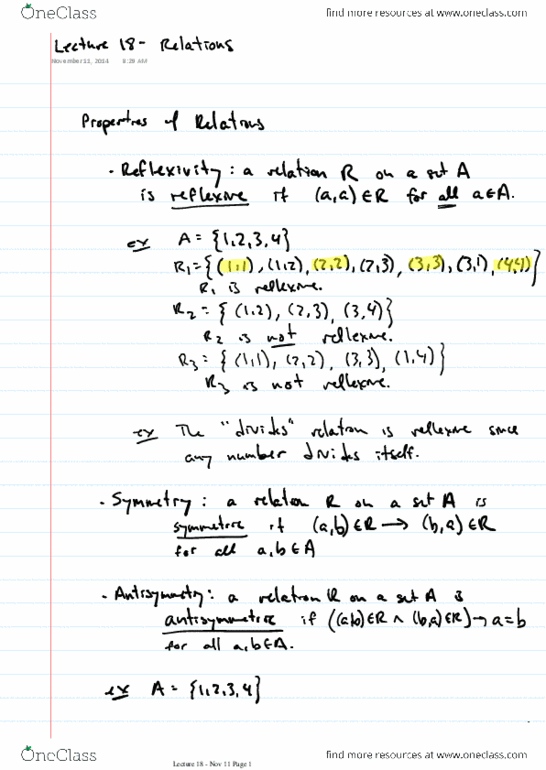 OneClass find more resources at www.oneclass.com
Lecture 18 - Relations
November 11, 2014 8:29 AM
Properties of Relations
· Reflexivity: a relation R on a set A
is reflexive if (a,a) ∈ R for all a∈A.
ex A = {1,2,3,4}
R₁ = {(1,1), (1,2), (2,2), (2,3), (3,3), (3,1), (4,4)}
R₁ is reflexive.
R₂ = { (1,2), (2,3), (3,4)}
R₂ is not reflexive.
R₃ = { (1,1), (2,2), (3,3), (1,4)}
R₃ is not reflexive.
ex The "divides" relation is reflexive since
any number divides itself.
· Symmetry: a relation R on a set A is
symmetric if (a,b) ∈R → (b,a) ∈R
for all a,b ∈ A
· Antisymmetry: a relation R on a set A is
antisymmetric if ((a,b)∈R ∧ (b,a)∈R) → a=b
for all a,b∈A.
ex A = {1,2,3,4}
Lecture 18 - Nov 11 Page 1
OneClass find more resources at www.oneclass.com